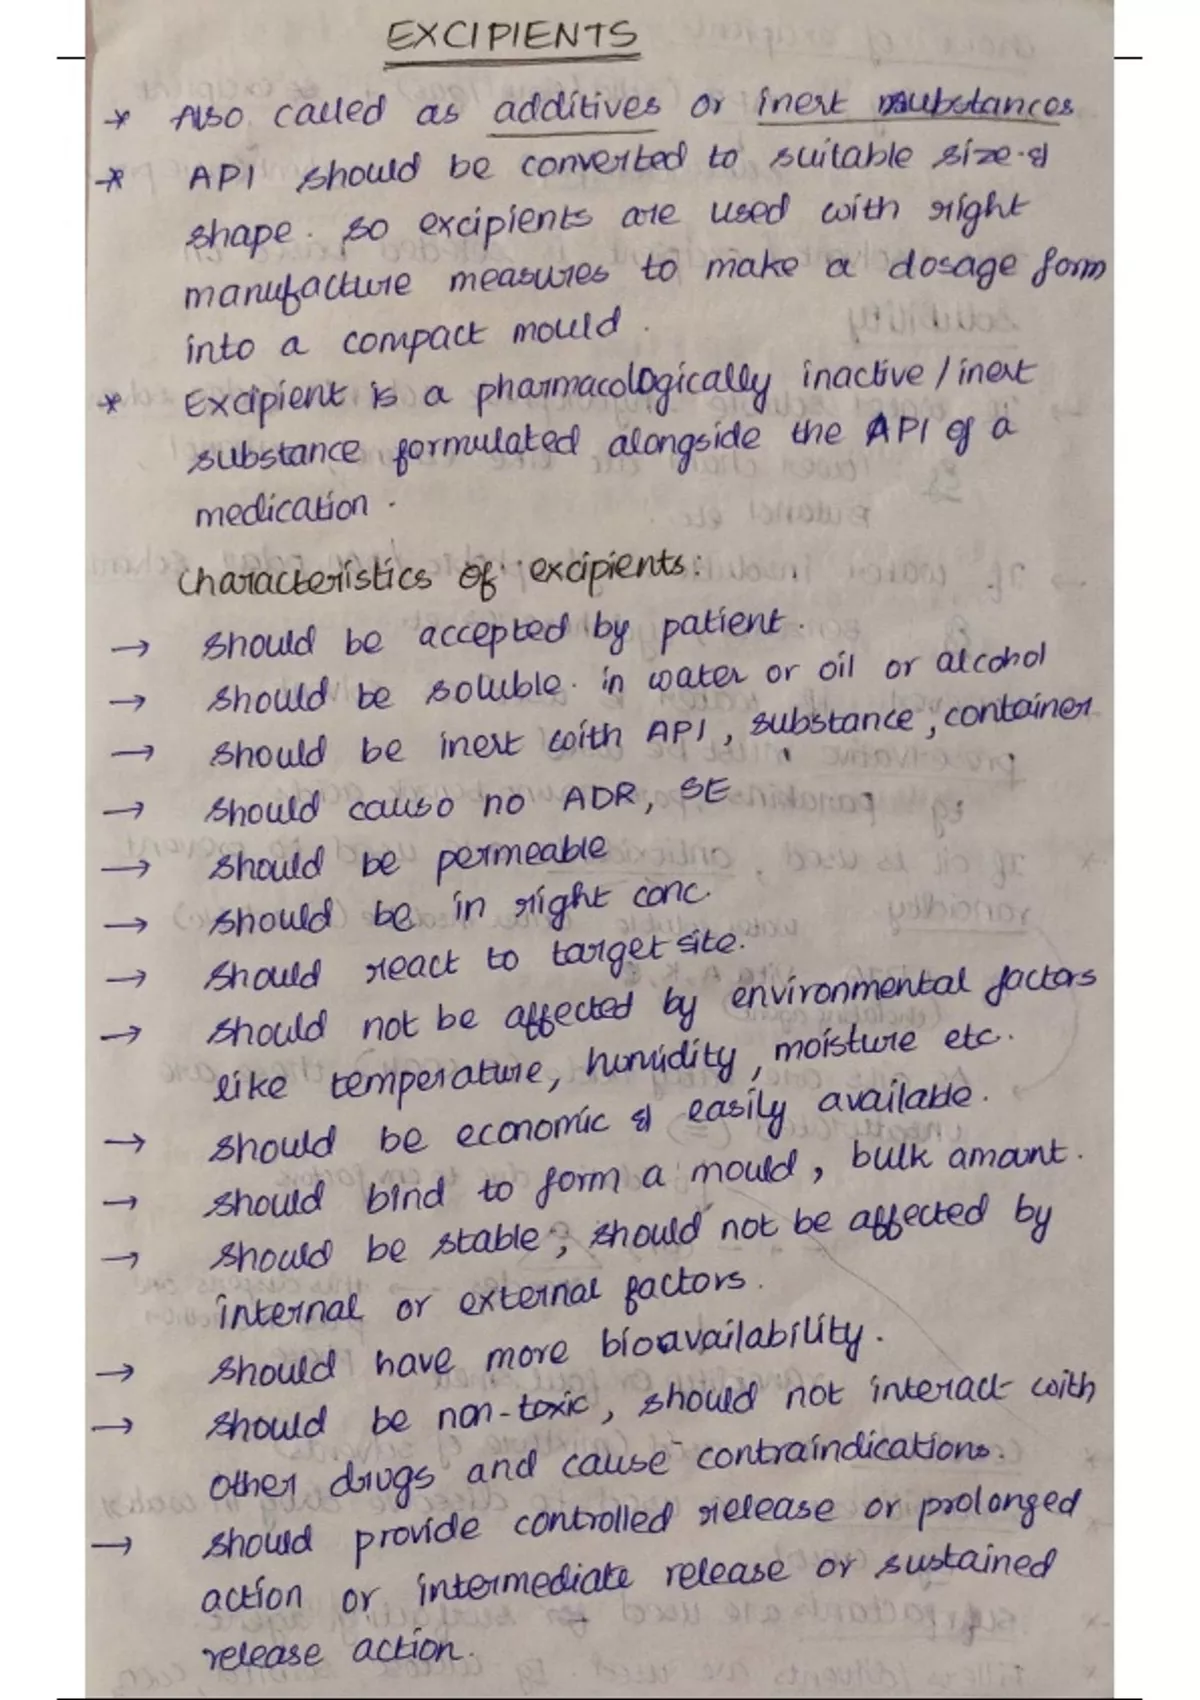 EXCIPIENTS
* Also called as additives or inert substances
* API should be converted to suitable size &
shape. so excipients are used with right
manufacture measures to make a dosage form
into a compact mould.
* Excipient is a pharmacologically inactive / inert
substance formulated alongside the API of a
medication.
Characteristics of excipients:
→ should be accepted by patient.
→ should be soluble in water or oil or alcohol
→ should be inert with API, substance, container
→ should cause no ADR, SE
→ should be permeable
→ should be in right conc.
→ should react to target site.
→ should not be affected by environmental factors
like temperature, humidity, moisture etc.
→ should be economic & easily available.
→ should bind to form a mould, bulk amount.
→ should be stable, should not be affected by
internal or external factors.
→ should have more bioavailability.
→ should be non-toxic, should not interact with
other drugs and cause contraindications.
→ should provide controlled release or prolonged
action or intermediate release or sustained
release action.